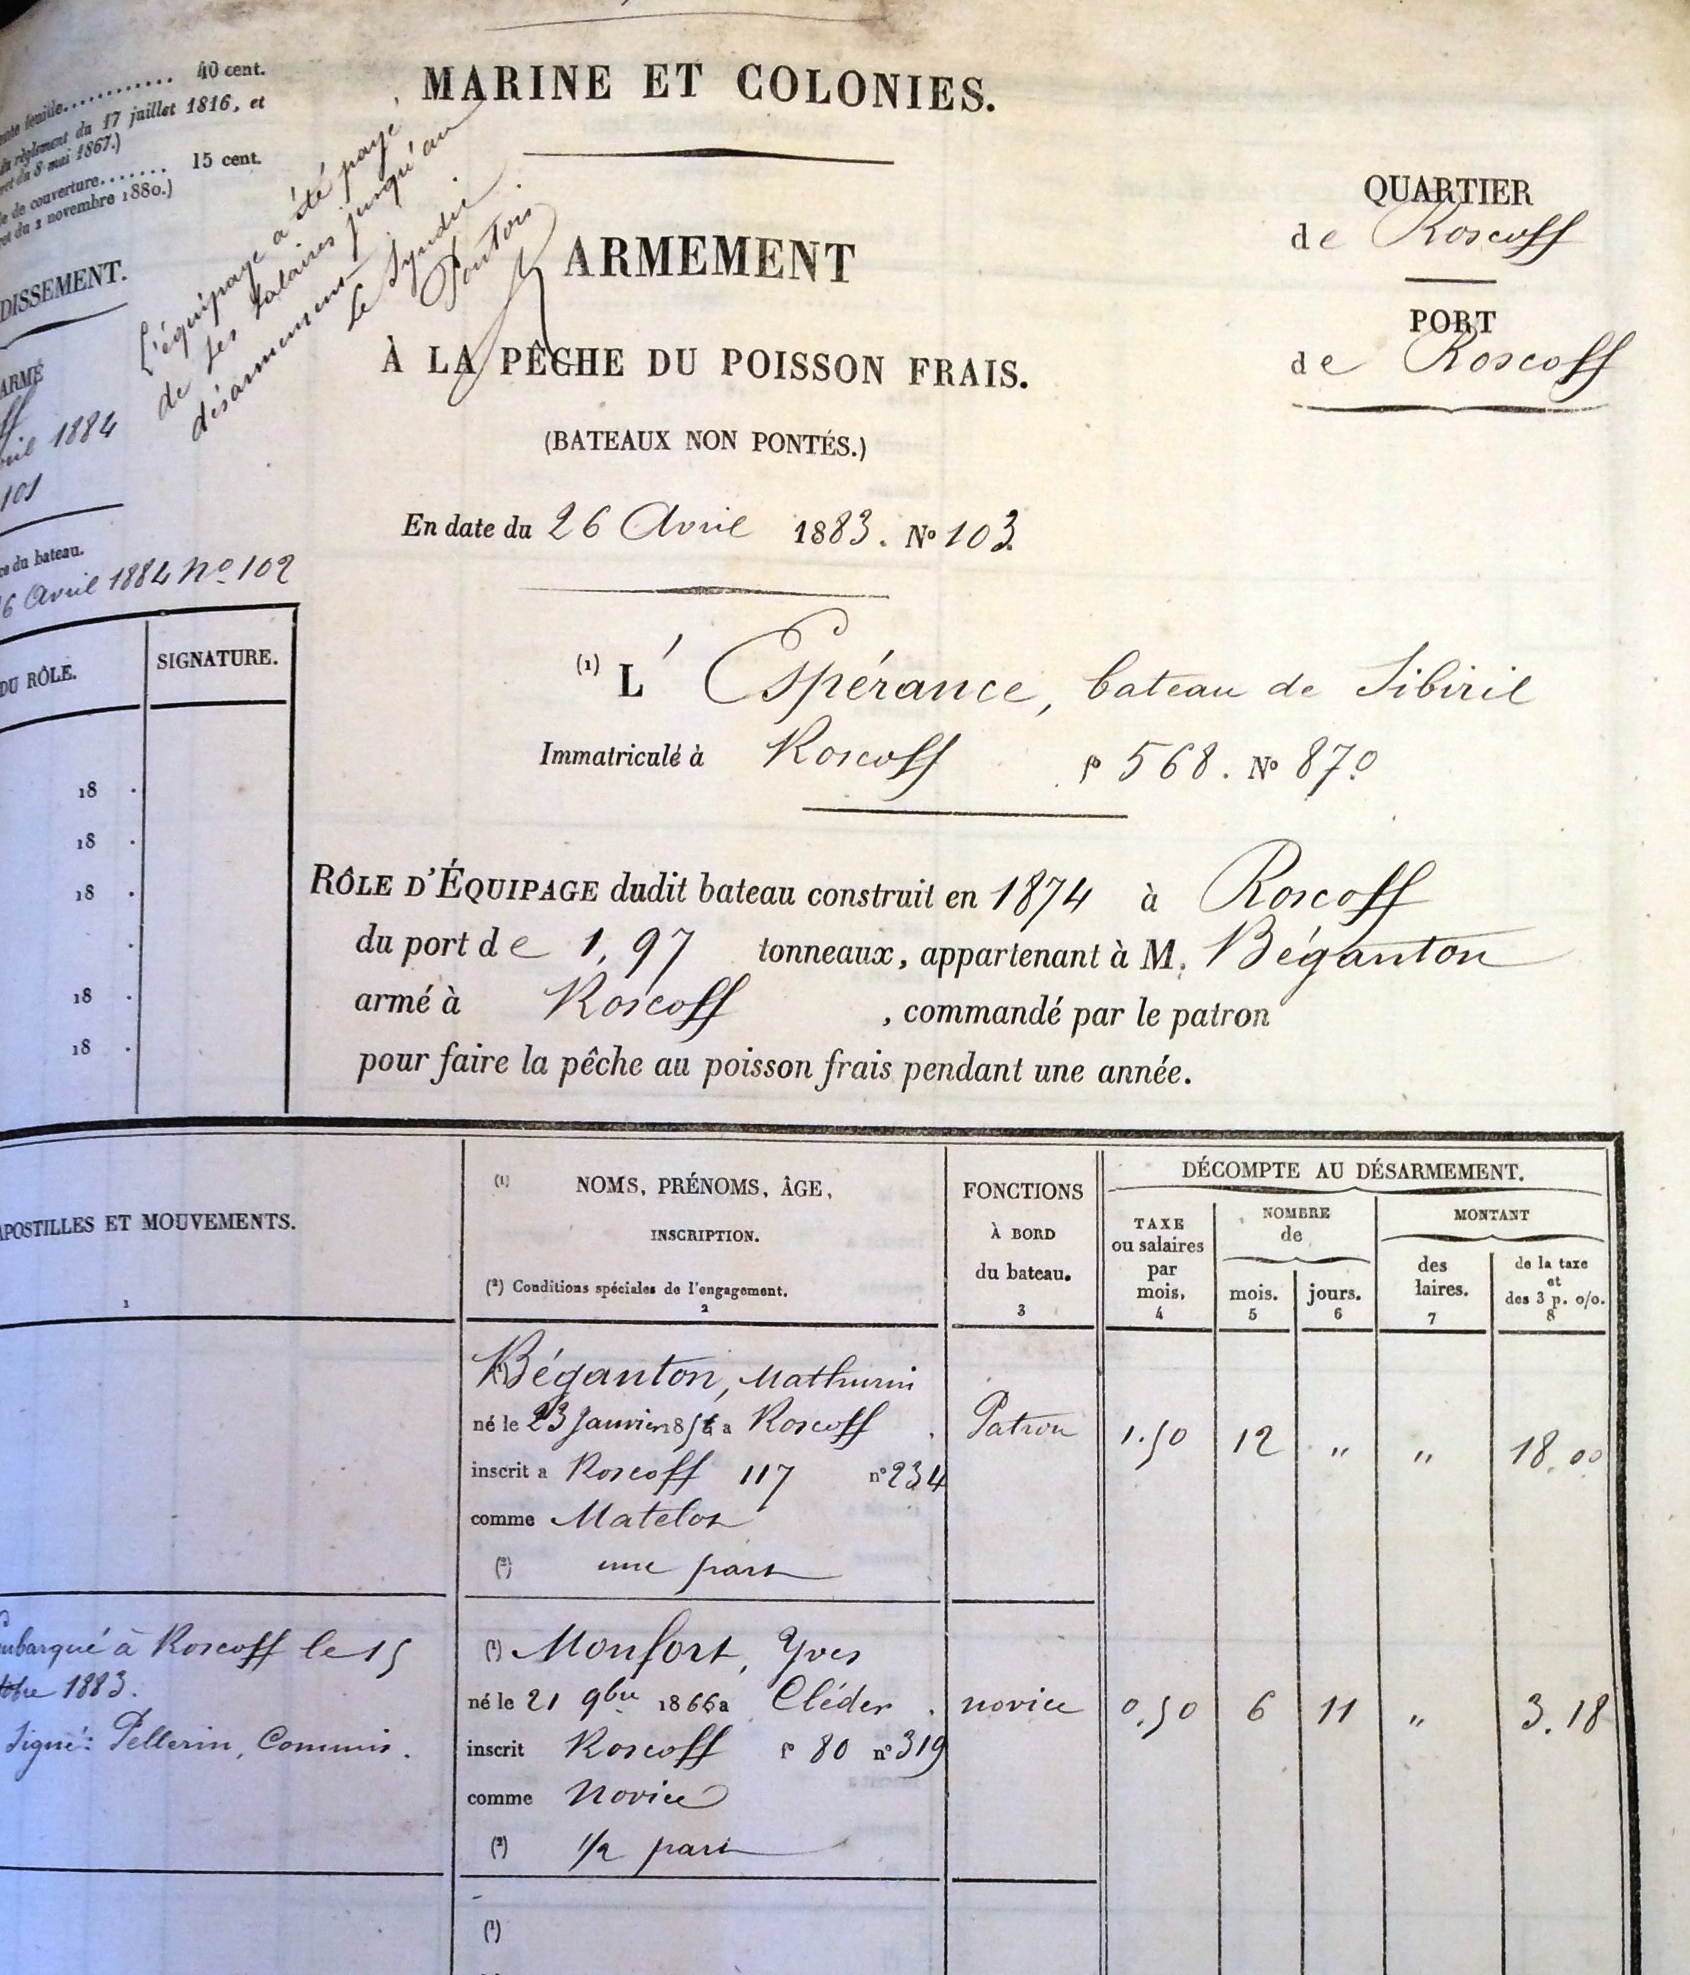 40 cent.
feuille
règlement du 17 juillet 1816, et
du 8 mai 1867.)
de couverture....... 15 cent.
du 2 novembre 1880.)
DISSEMENT.
ARMÉ
1884
101
du bateau.
6 Avril 1884 No 102
L'équipage a été payé
de ses salaires jusqu'au
désarmement
Le Syndic
Pontois
MARINE ET COLONIES.
QUARTIER
de Roscoff
PORT
de Roscoff
ARMEMENT
À LA PÊCHE DU POISSON FRAIS.
(BATEAUX NON PONTÉS.)
En date du 26 Avril 1883. No 103.
(1) L' Espérance, bateau de Sibiril
Immatriculé à Roscoff fo 568. No 870
DU RÔLE. SIGNATURE.
18 .
18 .
18 .
.
18 .
18 .
RÔLE D'ÉQUIPAGE dudit bateau construit en 1874 à Roscoff
du port de 1,97 tonneaux, appartenant à M. Béganton
armé à Roscoff , commandé par le patron
pour faire la pêche au poisson frais pendant une année.
APOSTILLES ET MOUVEMENTS.
1
(1) NOMS, PRÉNOMS, ÂGE,
INSCRIPTION.
(2) Conditions spéciales de l'engagement.
2
FONCTIONS
À BORD
du bateau.
3
DÉCOMPTE AU DÉSARMEMENT.
TAXE
ou salaires
par
mois.
4
NOMBRE
de
mois.
5
jours.
6
MONTANT
des
laires.
7
de la taxe
et
des 3 p. o/o.
8
Béganton, Mathurin
né le 23 Janvier 185 a Roscoff . Patron 1.50 12 " " 18.00
inscrit a Roscoff 117 no 234
comme Matelot
(2) une part
Embarqué à Roscoff le 15
1883.
Signé: Pellerin, Commis.
(1) Monfort, Yves
né le 21 9bre 1866 a Cléder . novice 0.50 6 11 " 3.18
inscrit Roscoff fo 80 no 319
comme Novice
(2) 1/2 part
(1)